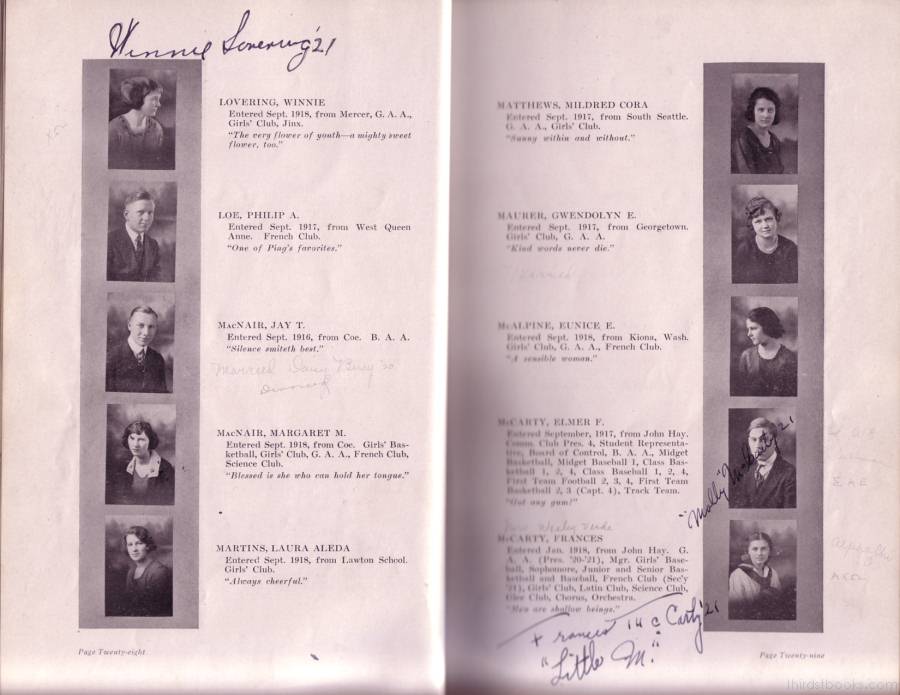 Winnie Lovering '21
LOVERING, WINNIE
Entered Sept. 1918, from Mercer, G. A. A.,
Girls' Club, Jinx.
"The very flower of youth—a mighty sweet
flower, too."
LOE, PHILIP A.
Entered Sept. 1917, from West Queen
Anne. French Club.
"One of Ping's favorites."
MacNAIR, JAY T.
Entered Sept. 1916, from Coe. B. A. A.
"Silence smiteth best."
Married Daisy
Divorced
MacNAIR, MARGARET M.
Entered Sept. 1918, from Coe. Girls' Bas-
ketball, Girls' Club, G. A. A., French Club,
Science Club.
"Blessed is she who can hold her tongue."
MARTINS, LAURA ALEDA
Entered Sept. 1918, from Lawton School.
Girls' Club.
"Always cheerful."
Page Twenty-eight
MATTHEWS, MILDRED CORA
Entered Sept. 1917, from South Seattle.
G. A. A., Girls' Club.
"Sunny within and without."
MAURER, GWENDOLYN E.
Entered Sept. 1917, from Georgetown.
Girls' Club, G. A. A.
"Kind words never die."
Married
McALPINE, EUNICE E.
Entered Sept. 1918, from Kiona, Wash.
Girls' Club, G. A. A., French Club.
"A sensible woman."
McCARTY, ELMER F.
Entered September, 1917, from John Hay.
Comm. Club Pres. 4, Student Representa-
tive, Board of Control, B. A. A., Midget
Basketball, Midget Baseball 1, Class Bas-
ketball 1, 2, 4, Class Baseball 1, 2, 4,
First Team Football 2, 3, 4, First Team
Basketball 2, 3 (Capt. 4), Track Team.
"Got any gum?"
"Molly" McCarty '21
Mrs Wesley
McCARTY, FRANCES
Entered Jan. 1918, from John Hay. G.
A. A. (Pres. '20-'21), Mgr. Girls' Base-
ball, Sophomore, Junior and Senior Bas-
ketball and Baseball, French Club (Sec'y
'21), Girls' Club, Latin Club, Science Club,
Glee Club, Chorus, Orchestra.
"Men are shallow beings."
Frances McCarty '21
"Little M."
Page Twenty-nine
thirdstbooks.com